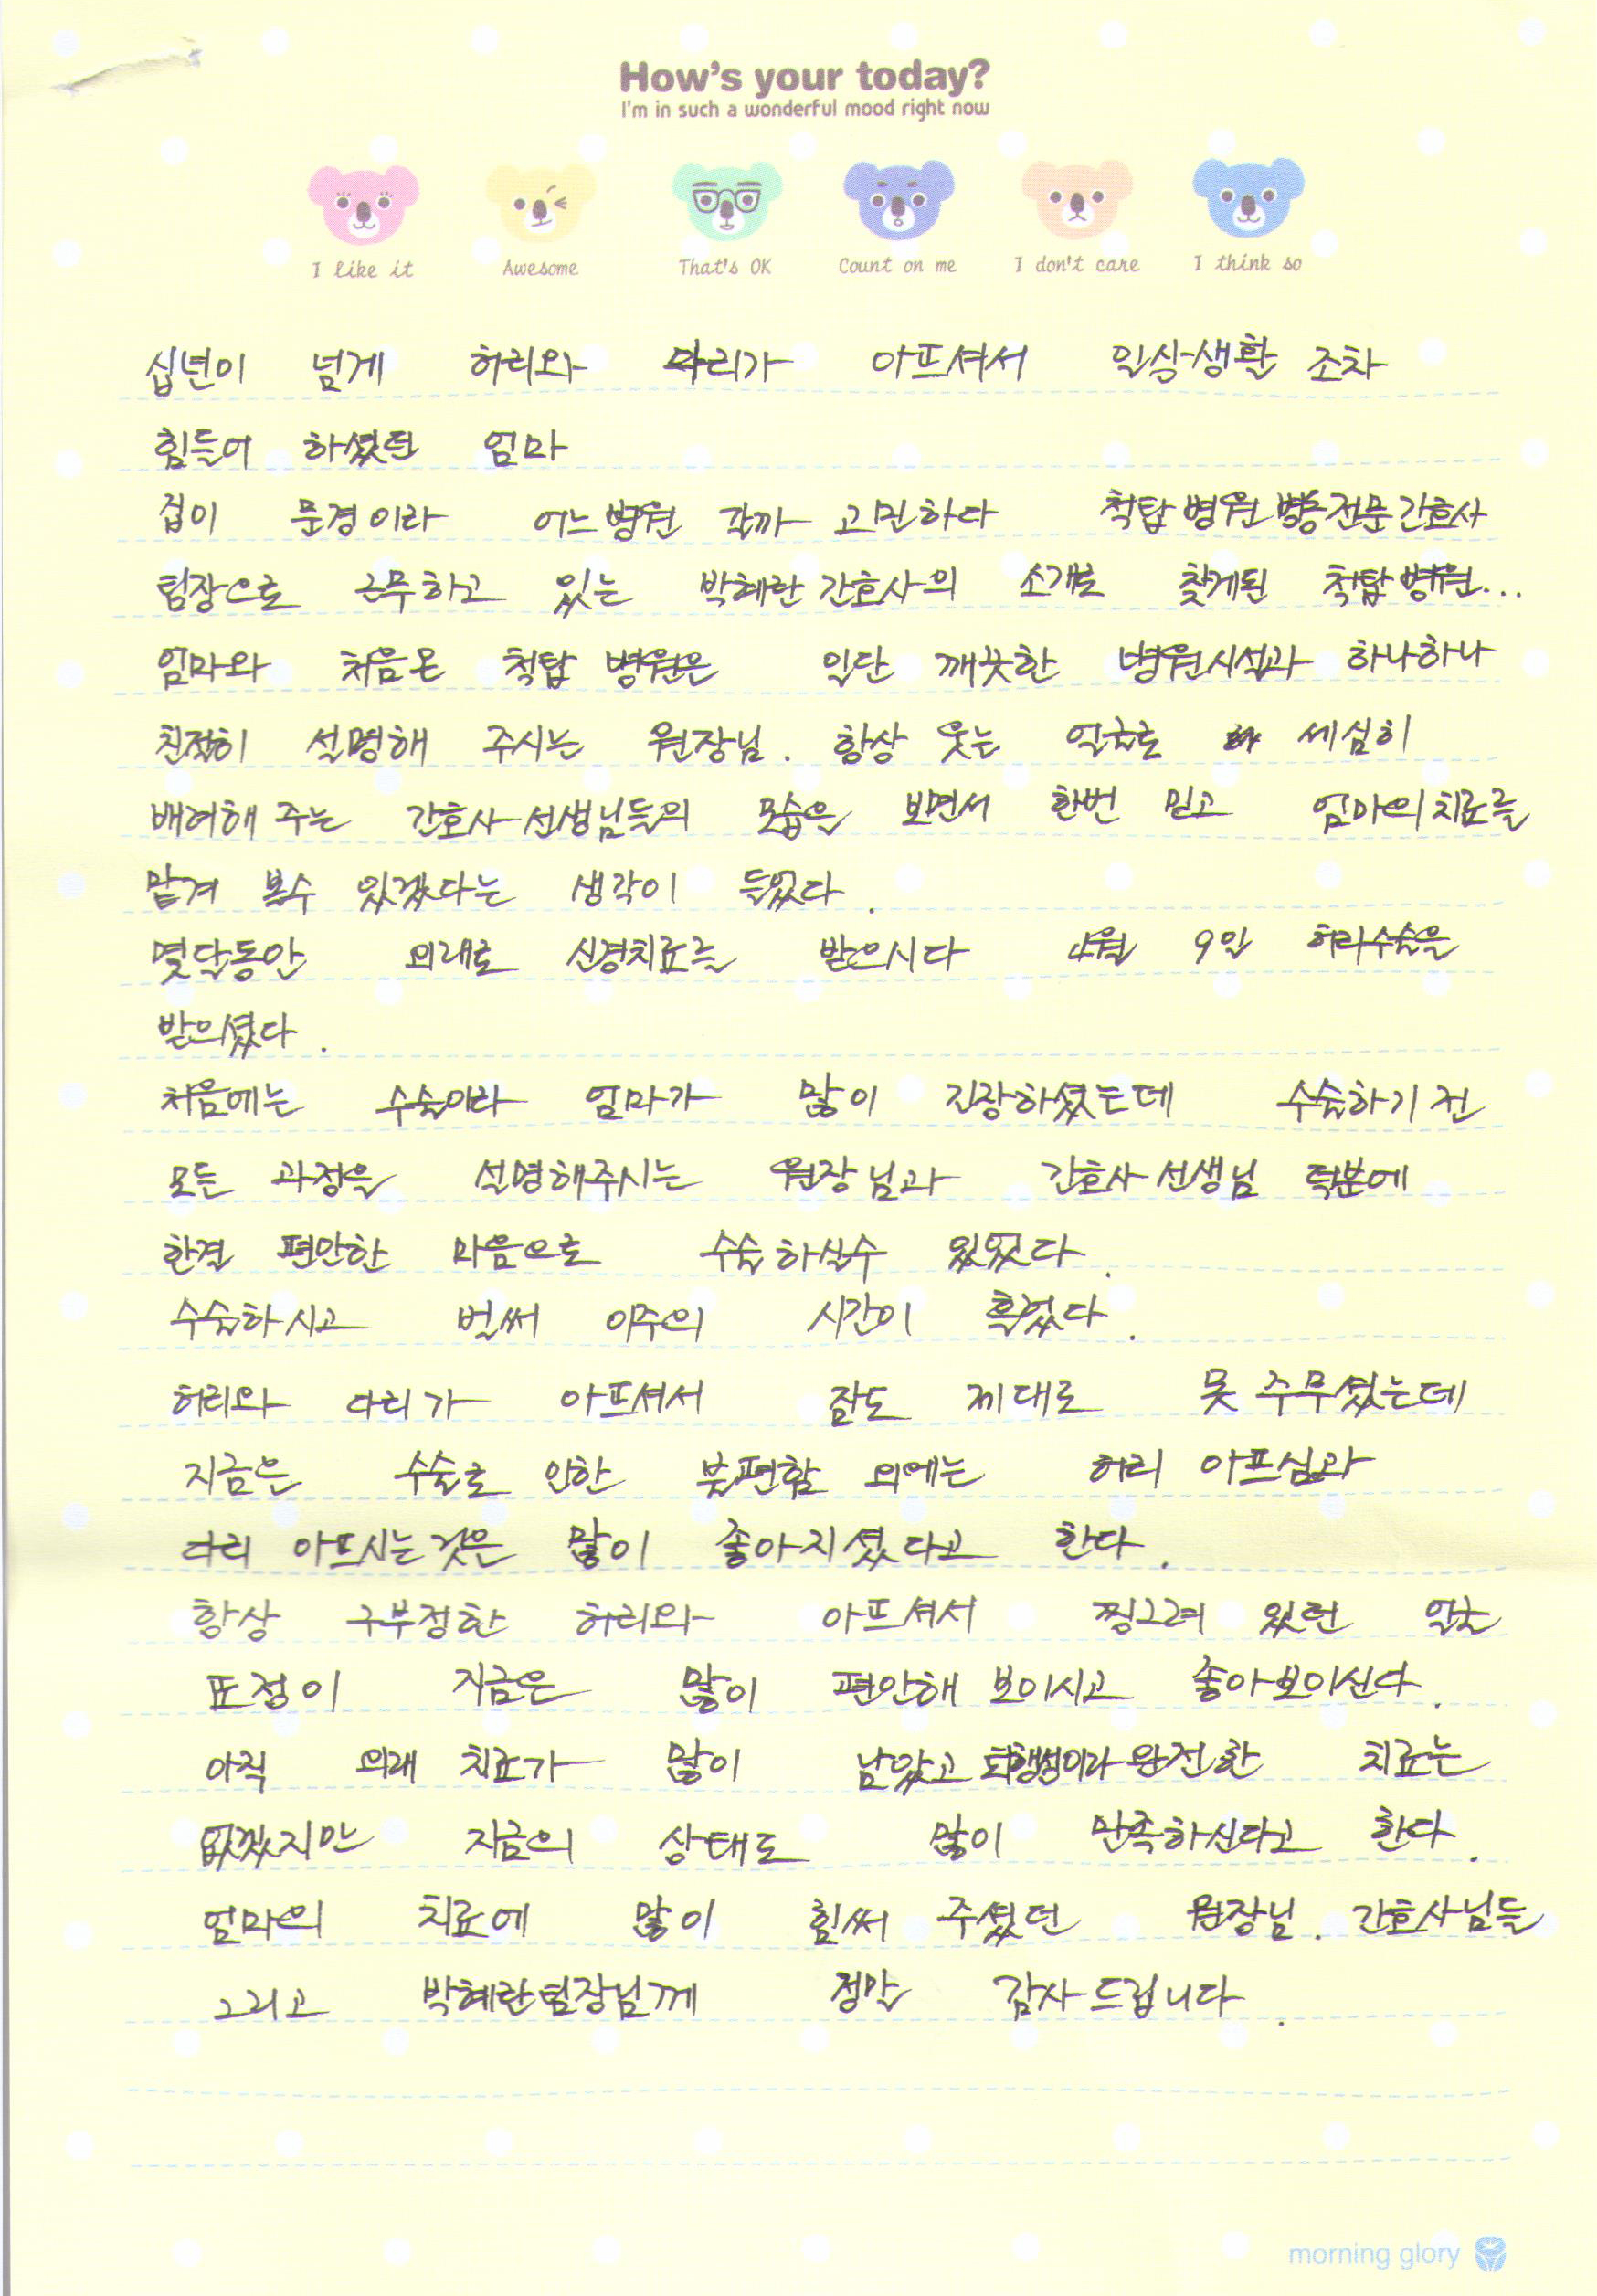 How's your today?
I'm in such a wonderful mood right now
I like it Awesome That's OK Count on me I don't care I think so
십년이 넘게 허리와 다리가 아프셔서 일상생활 조차
힘들어 하셨던 엄마
집이 문경이라 어느병원 갈까 고민하다 척탑병원 병동전문간호사
팀장으로 근무하고 있는 박혜란간호사의 소개로 찾게된 척탑병원...
엄마와 처음온 척탑병원은 일단 깨끗한 병원시설과 하나하나
친절히 설명해 주시는 원장님. 항상 웃는 얼굴로 세심히
배려해주는 간호사선생님들의 모습을 보면서 한번 믿고 엄마의치료를
맡겨 볼수 있겠다는 생각이 들었다.
몇달동안 외래로 신경치료를 받으시다 4월 9일 허리수술을
받으셨다.
처음에는 수술이라 엄마가 많이 긴장하셨는데 수술하기전
모든 과정을 설명해주시는 원장님과 간호사선생님 덕분에
한결 편안한 마음으로 수술하실수 있었다.
수술하시고 벌써 이주의 시간이 흘렀다.
허리와 다리가 아프셔서 잠도 제대로 못주무셨는데
지금은 수술로 인한 불편함 외에는 허리 아프심과
다리 아프시는것은 많이 좋아지셨다고 한다.
항상 구부정한 허리와 아프셔서 찡그려 있던 얼굴
표정이 지금은 많이 편안해 보이시고 좋아보이신다.
아직 외래 치료가 많이 남았고 퇴행성이라 완전한 치료는
없겠지만 지금의 상태도 많이 만족하신다고 한다.
엄마의 치료에 많이 힘써 주셨던 원장님. 간호사님들
그리고 박혜란팀장님께 정말 감사드립니다.
morning glory